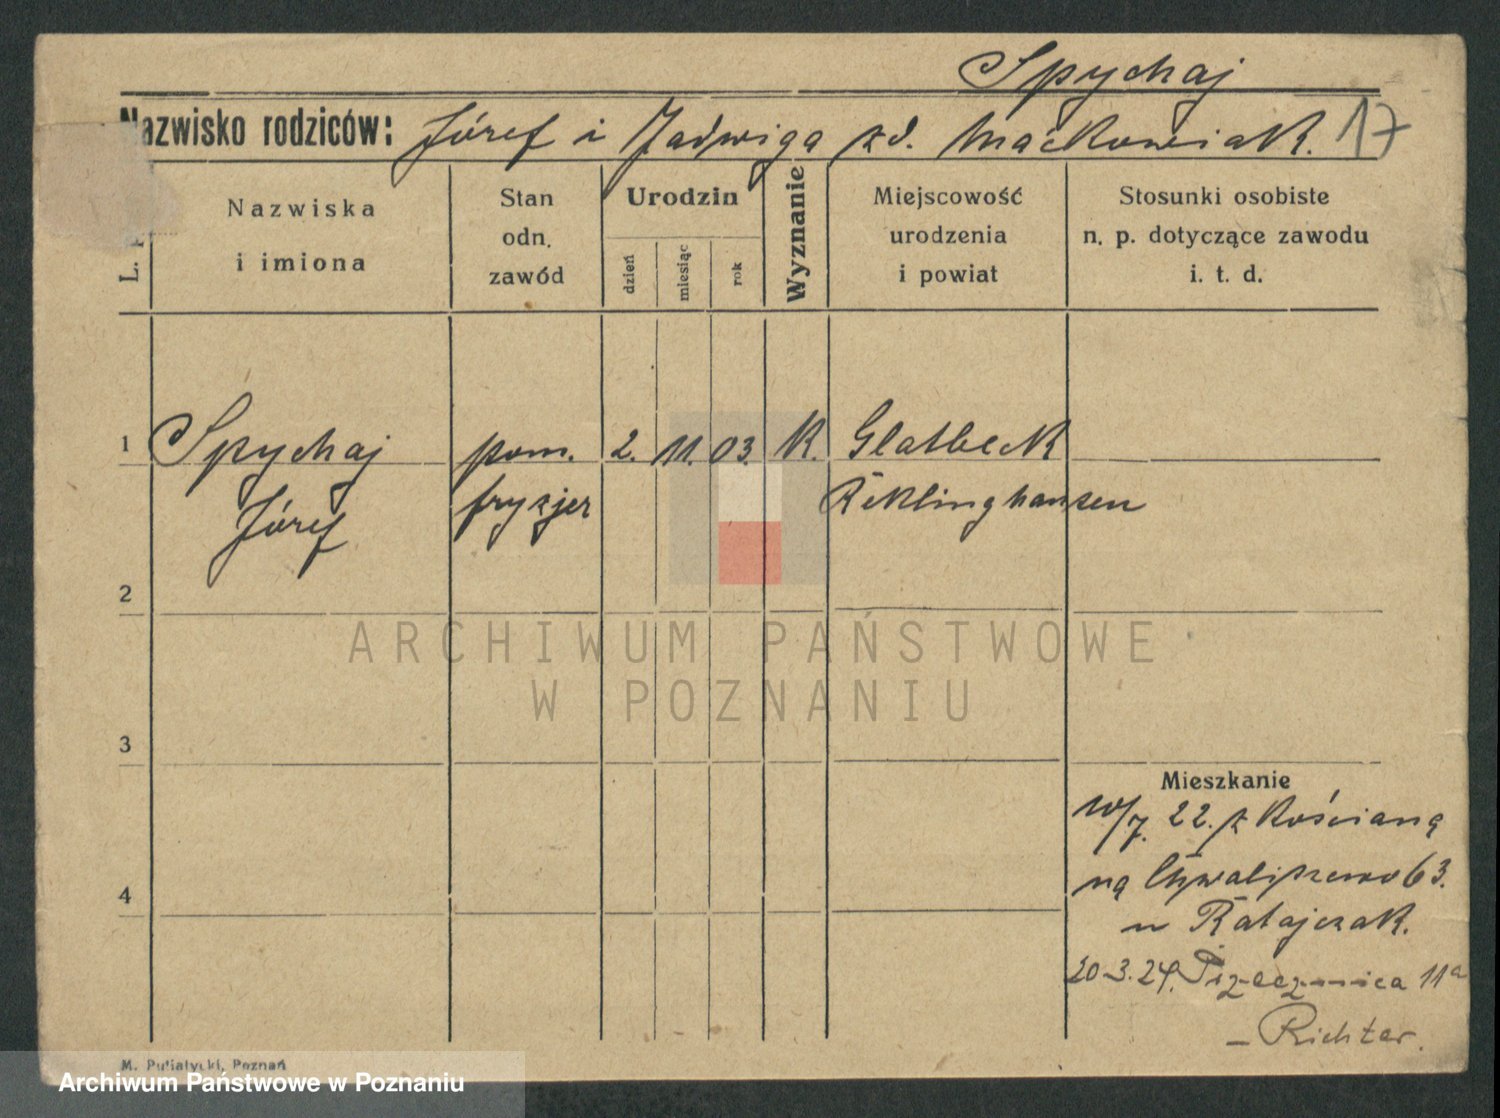 Spychaj
Nazwisko rodziców: Józef i Jadwiga zd. Maćkowiak. 17
L. p.
Nazwiska
i imiona
Stan
odn.
zawód
Urodzin
dzień
miesiąc
rok
Wyznanie
Miejscowość
urodzenia
i powiat
Stosunki osobiste
n. p. dotyczące zawodu
i. t. d.
1 Spychaj pom. 2. 11. 03. K. Glatbeck
Józef fryzjer Reklinghausen
2
ARCHIWUM PAŃSTWOWE
W POZNANIU
3
Mieszkanie
10/7. 22. z Kościana
na Chwaliszewo 63.
4
u Ratajczak.
20.3.24. 11a
– Richter.
M. Putiatycki, Poznań
Archiwum Państwowe w Poznaniu